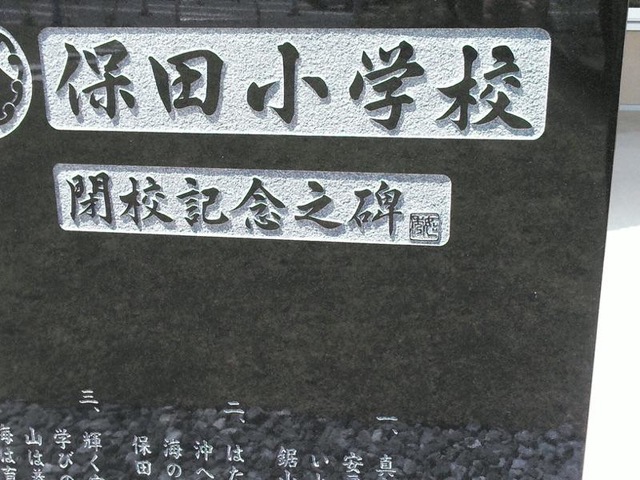 保田小学校
閉校記念之碑
一、真
安房
い
鋸山
二、はた
沖へ
海の
保田
三、輝く
学びの
山は
海は